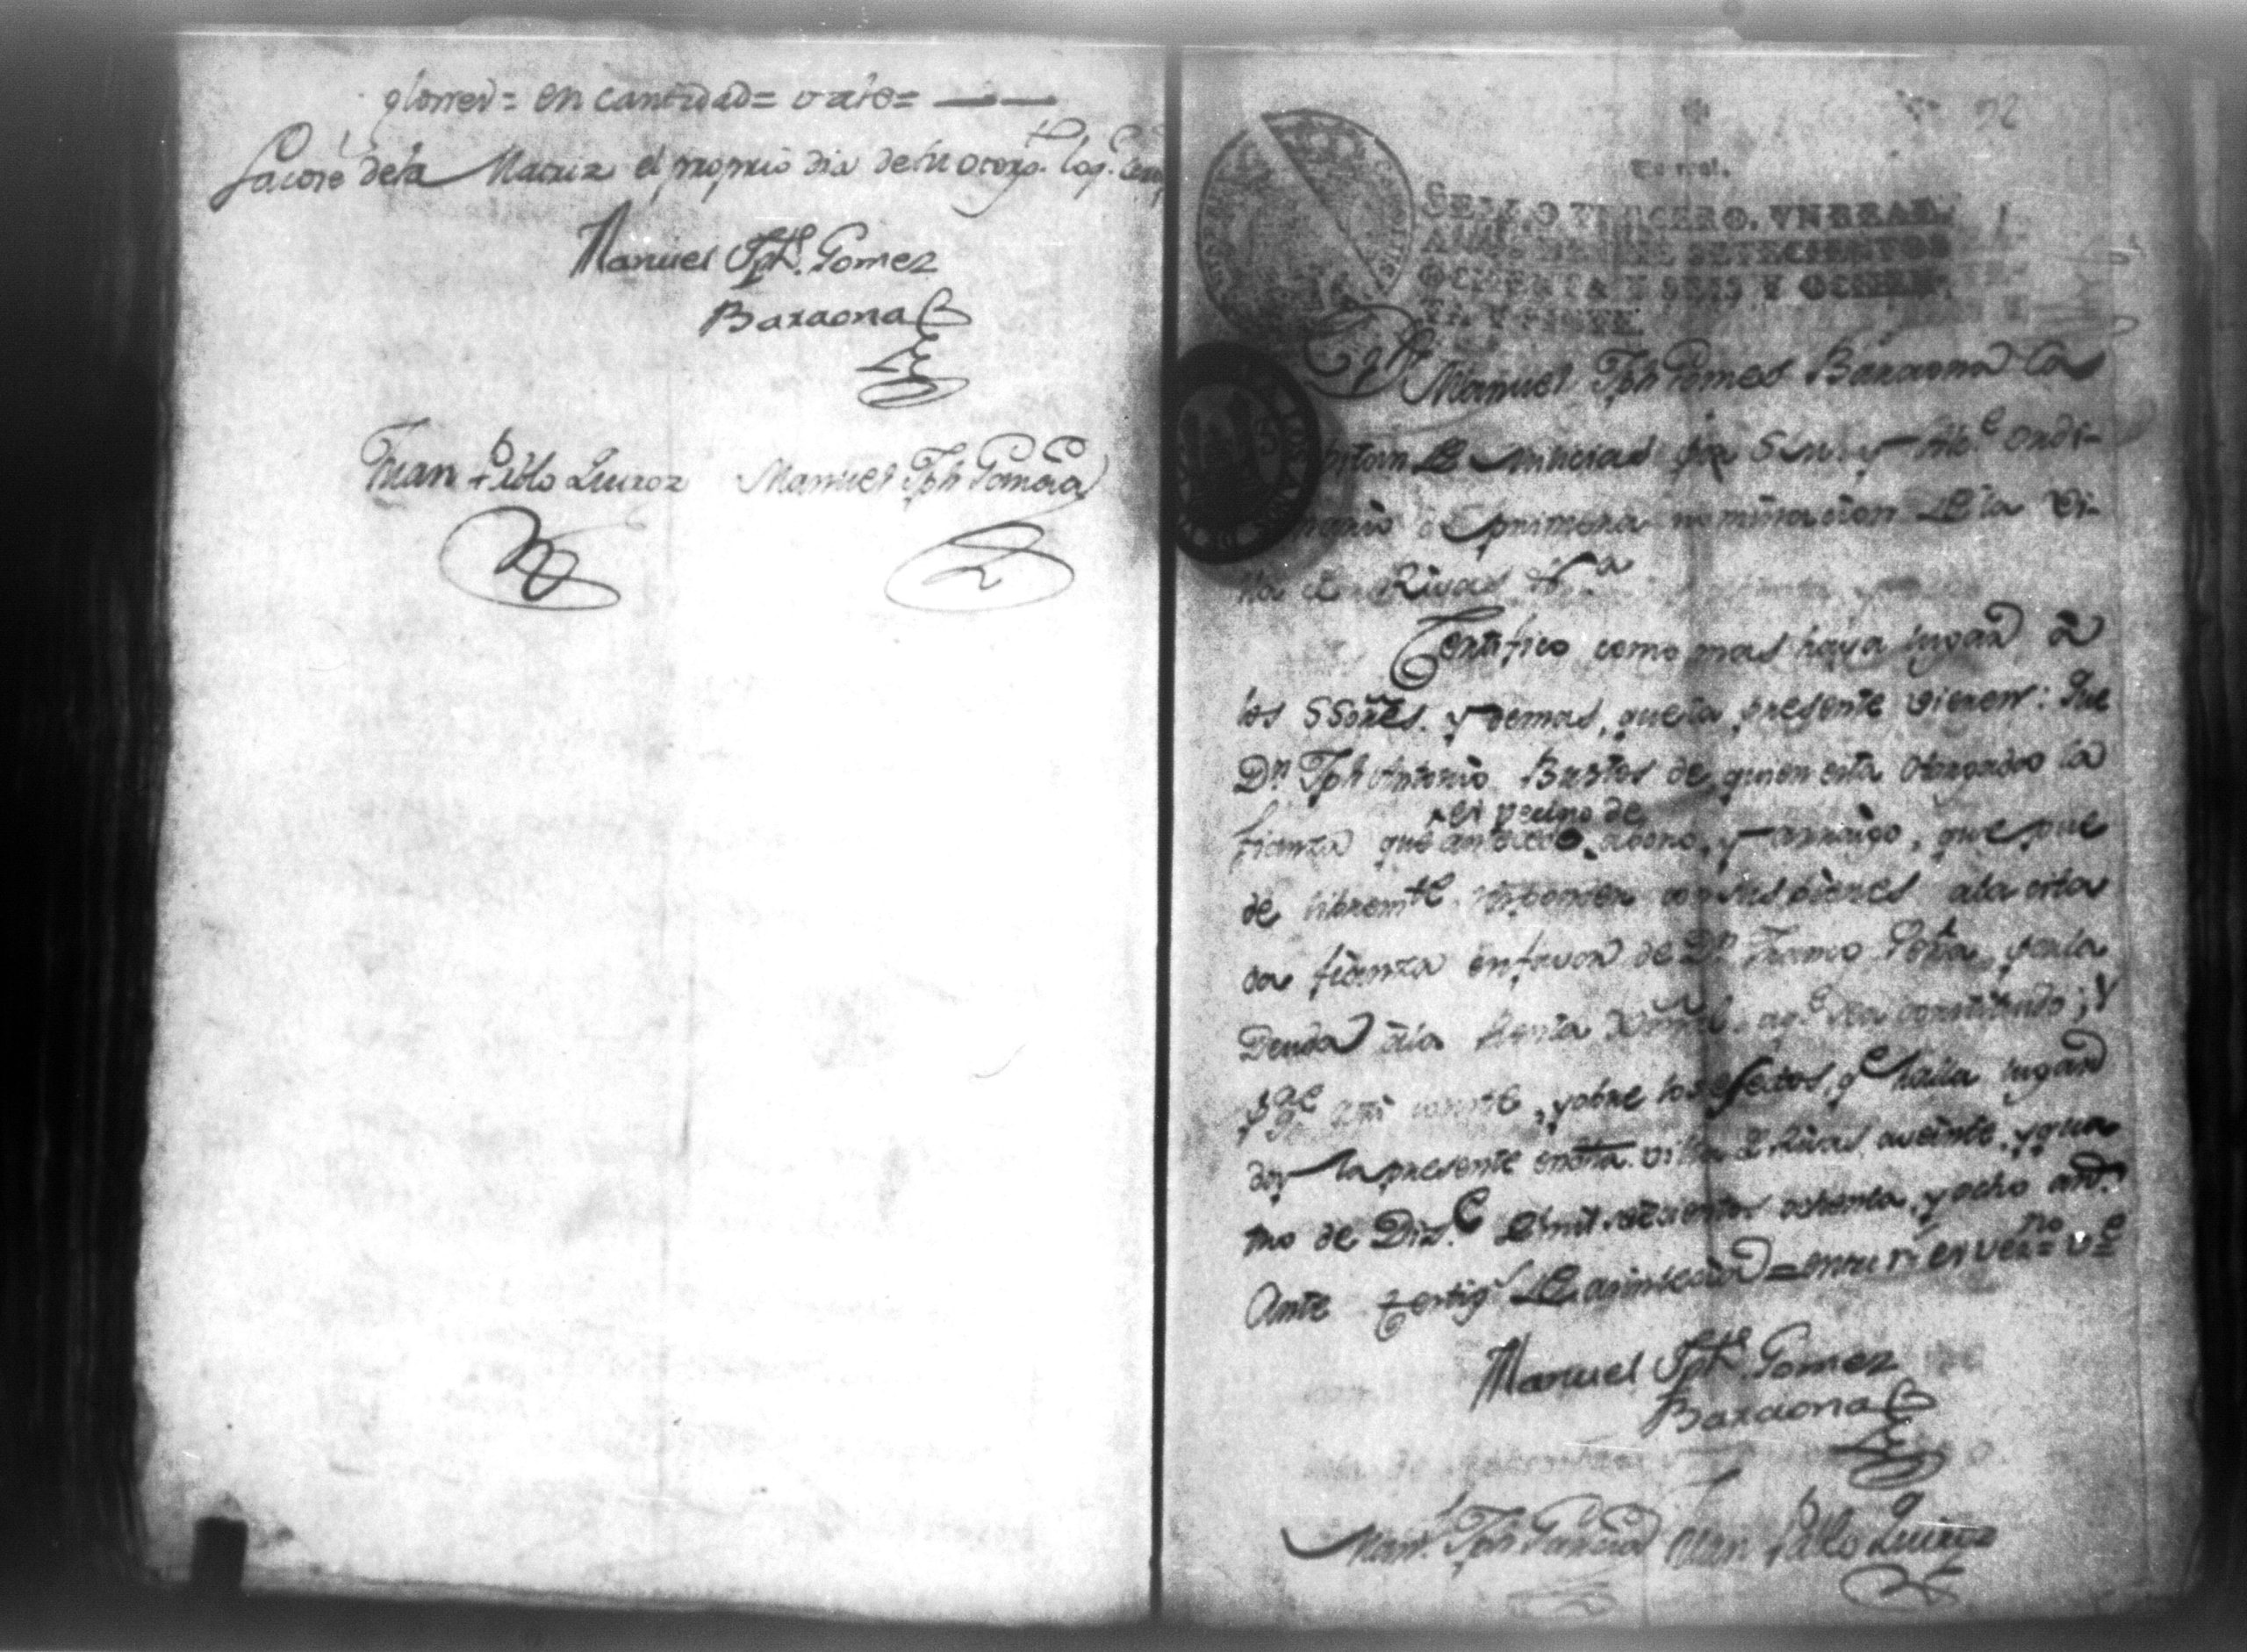 glones = en cantidad = vale =
Sacose dela Matriz el proprio dia de su otorg.to loq.e
Manuel Jph. Gomez
Baraona
Juan Pablo Quiroz Manuel Jph Garcia
92
Un real.
SELLO TERCERO, VN REAL,
AÑOS DE MIL SETECIENTOS
OCHENTA Y SEIS Y OCHEN-
TA Y SIETE.
Manuel Jph Gomes Baraona Ca
pitan de Milicias por S.M. y Alc.e ordi-
nario de primera nominacion de la Vi-
lla de Rivas &.a
Certifico como mas haya lugar á
los SSores. y demas, que la presente vieren: Que
Dn Jph Antonio Bustos de quien esta otorgada la
es vecino de
fianza que antecede abono, y arraigo, que pue
de librem.te responder con sus bienes ala cita
da fianza en favor de Dn Franco Peña, y ala
Deuda ála Renta q.e constituido; y
p.a q.e asi conste, y obre los efectos, q.e haiia lugar
doy la presente en dha. villa de Rivas aveinte, y qua
tro de Diz.e de mil setecientos ochenta, y ocho añ.s
Ante testig.s de asistencia = entre r.s es vecino = v.e
Manuel Jph. Gomez
Baraona
Man.l Jph Garcia Juan Pablo Quiroz